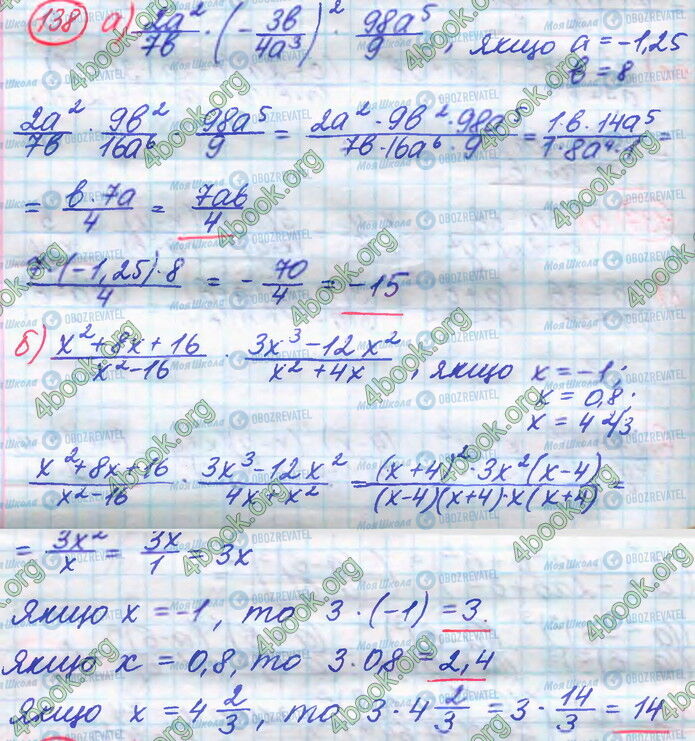 138 а) 2a²/7b · (− 3b/4a³)² · 98a⁵/9, якщо a = −1,25
b = 8
2a²/7b · 9b²/16a⁶ · 98a⁵/9 = (2a² · 9b² · 98a⁵)/(7b · 16a⁶ · 9) = (1b · 14a⁵)/(1 · 8a⁴ · 1) =
= (b · 7a)/4 = 7ab/4
(7 · (−1,25) · 8)/4 = − 70/4 = −15
б) (x² + 8x + 16)/(x² − 16) · (3x³ − 12x²)/(x² + 4x), якщо x = −1;
x = 0,8;
x = 4 2/3
(x² + 8x + 16)/(x² − 16) · (3x³ − 12x²)/(4x + x²) = ((x+4)² · 3x²(x−4))/((x−4)(x+4) · x(x+4)) =
= 3x²/x = 3x/1 = 3x
Якщо x = −1, то 3 · (−1) = 3.
Якщо x = 0,8, то 3 · 0,8 = 2,4
Якщо x = 4 2/3, то 3 · 4 2/3 = 3 · 14/3 = 14